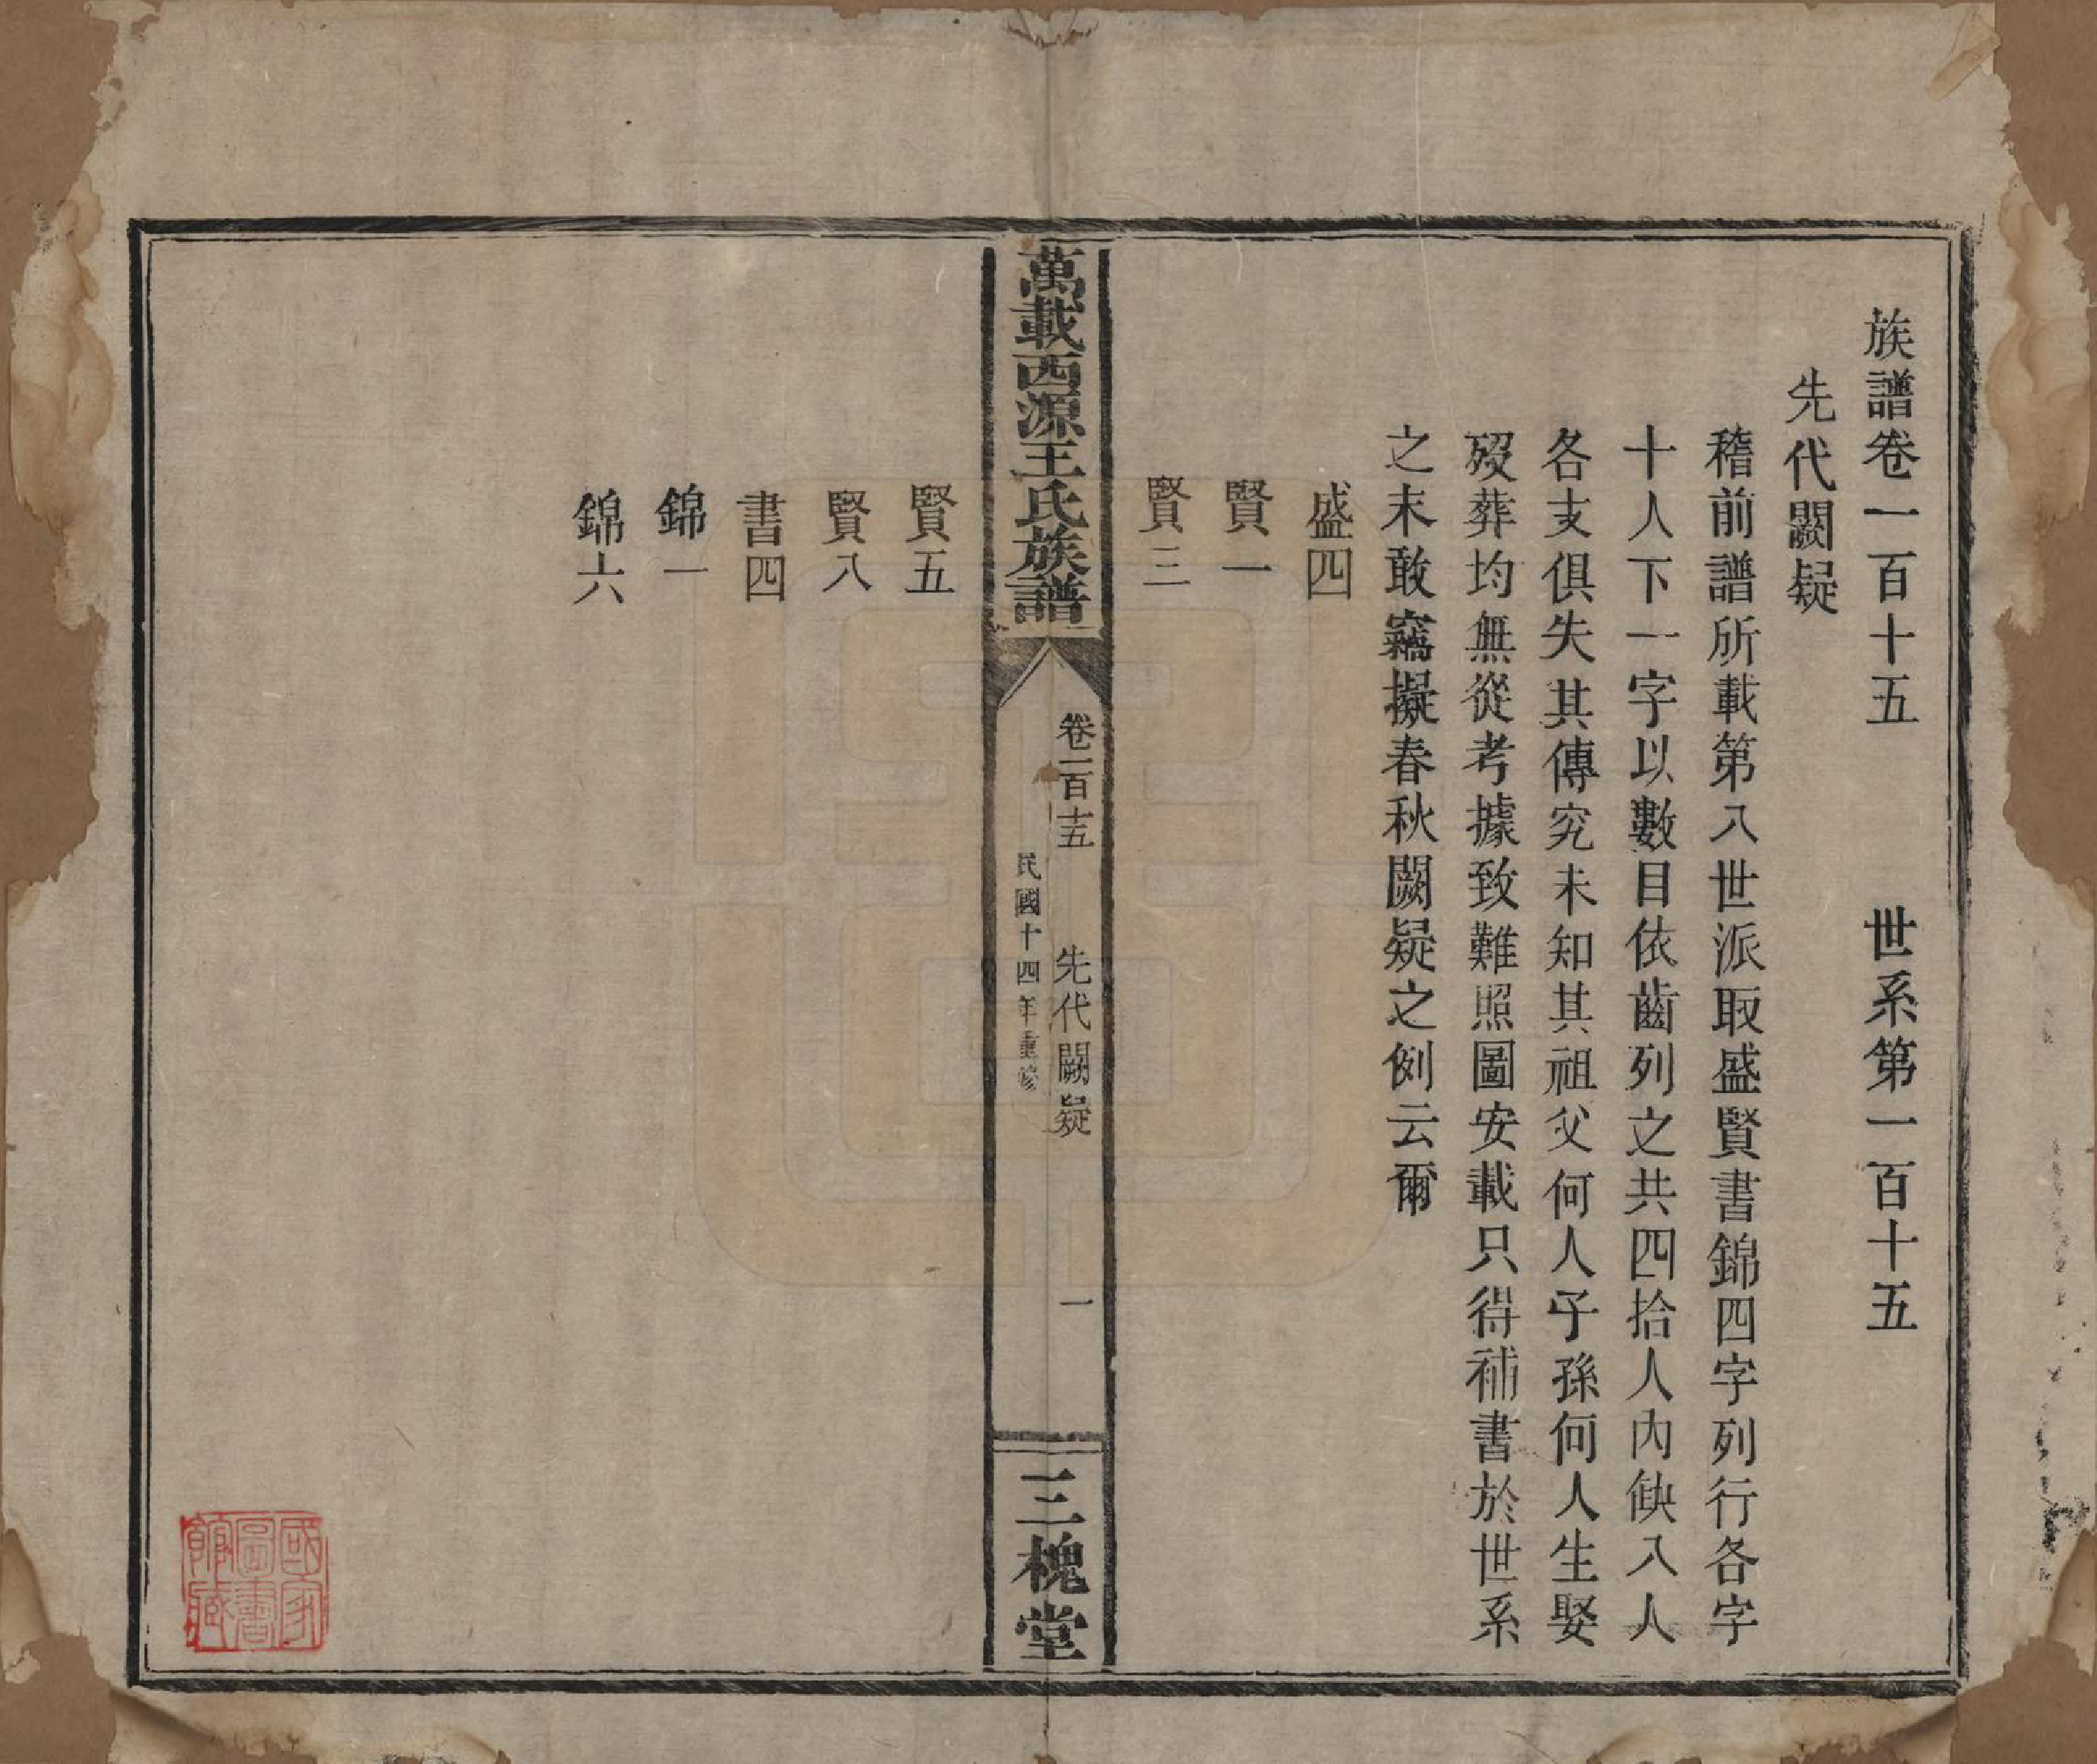 族譜卷一百十五　世系第一百十五
先代闕疑
稽前譜所載第八世派取盛賢書錦四字列行各字
十人下一字以數目依齒列之共四拾人內缺八人
各支俱失其傳究未知其祖父何人子孫何人生娶
歿葬均無從考據致難照圖安載只得補書於世系
之末敢竊擬春秋闕疑之例云爾
盛四
賢一
賢三
萬載西源王氏族譜
卷一百十五　先代闕疑　一
民國十四年重修
三槐堂
賢五
賢八
書四
錦一
錦六
國家
圖書
館藏